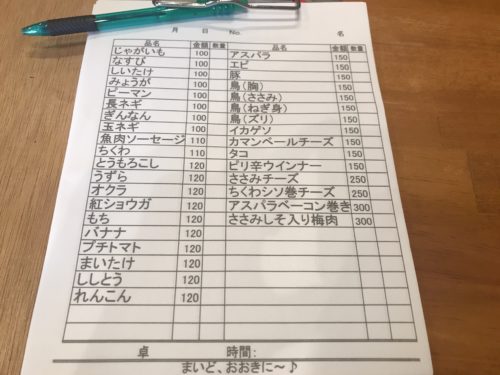 月 日 No. 名
品名 金額 数量 品名 金額 数量
じゃがいも 100 アスパラ 150
なすび 100 エビ 150
しいたけ 100 豚 150
みょうが 100 鳥(胸) 150
ピーマン 100 鳥(ささみ) 150
長ネギ 100 鳥(ねぎ身) 150
ぎんなん 100 鳥(ズリ) 150
玉ネギ 100 イカゲソ 150
魚肉ソーセージ 110 カマンベールチーズ 150
ちくわ 110 タコ 150
とうもろこし 120 ピリ辛ウインナー 150
うずら 120 ささみチーズ 250
オクラ 120 ちくわシソ巻チーズ 250
紅ショウガ 120 アスパラベーコン巻き 300
もち 120 ささみしそ入り梅肉 300
バナナ 120
プチトマト 120
まいたけ 120
ししとう 120
れんこん 120
卓 時間:
まいど、おおきに～♪